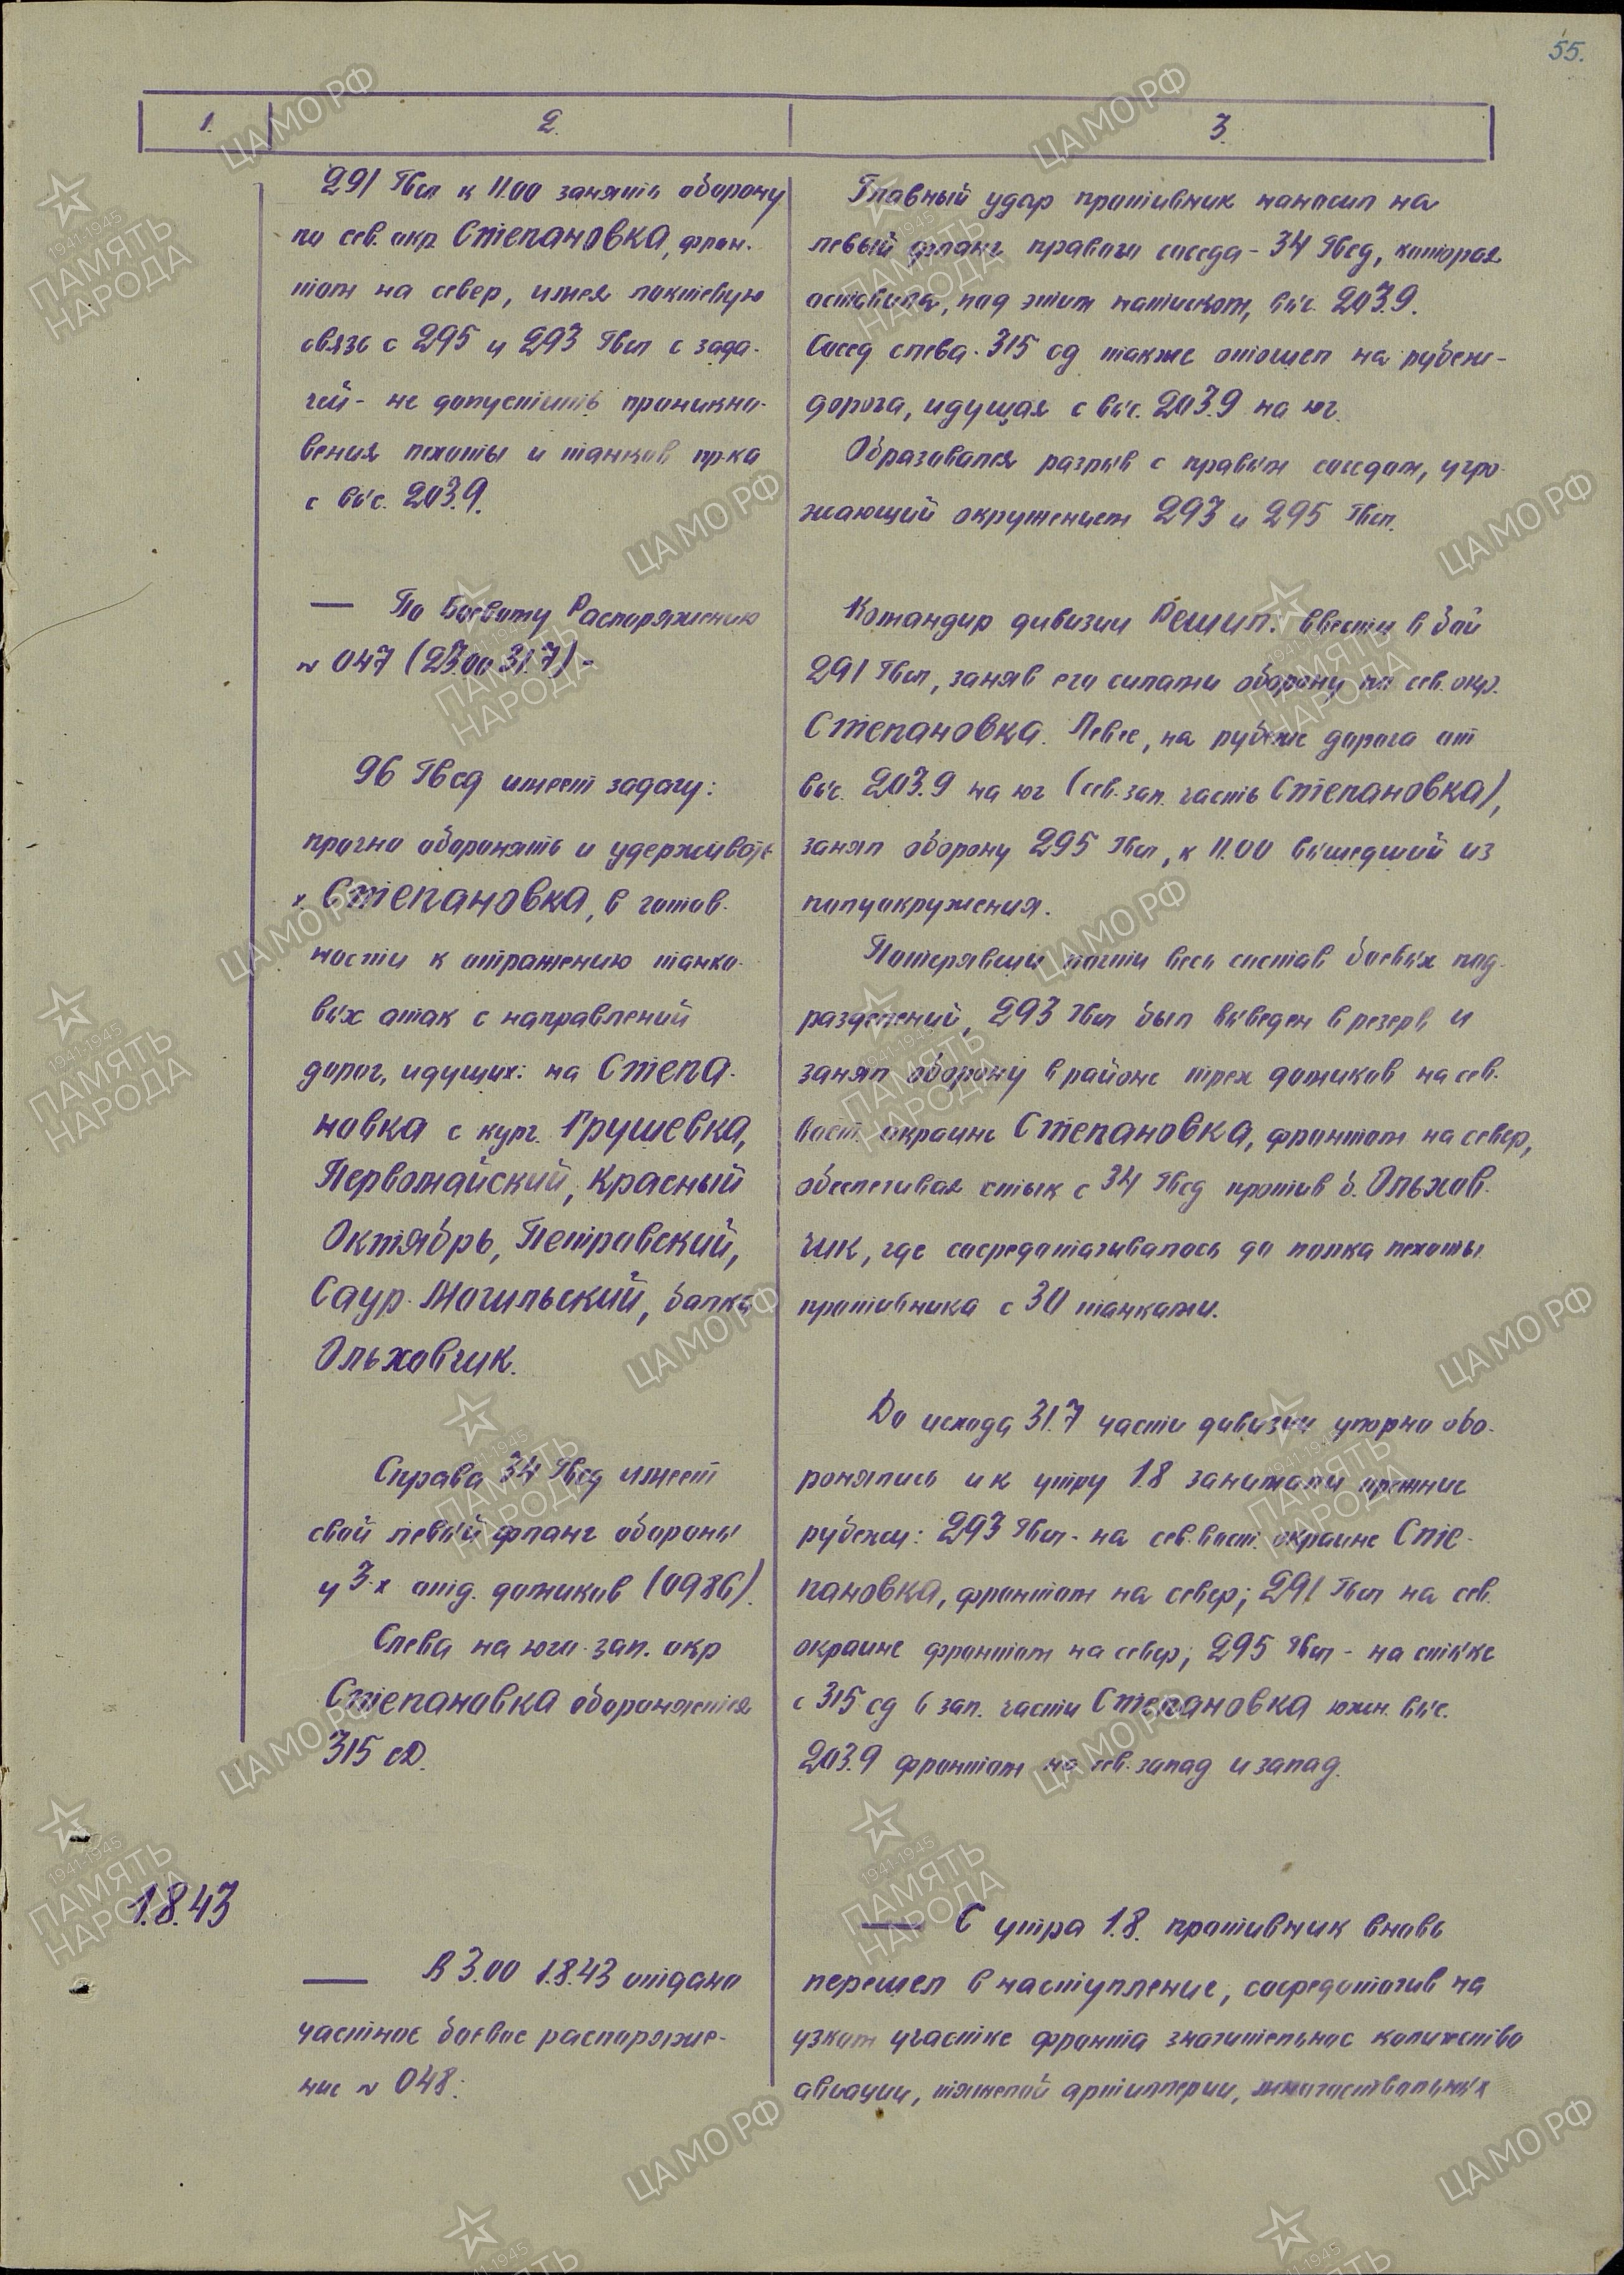 55.
1.
2.
3.
291 Гвсп к 11.00 занять оборону
по сев. окр. Степановка, фрон-
том на север, имея локтевую
связь с 295 и 293 Гвсп с зада-
чей - не допустить проникно-
вения пехоты и танков пр-ка
с выс. 203.9.
— По Боевому Распоряжению
№ 047 (23.00 31.7) -
96 Гвсд имеет задачу:
прочно оборонять и удерживать
х. Степановка, в готов-
ности к отражению танко-
вых атак с направлений
дорог, идущих: на Степа-
новка с кург. Грушевка,
Первомайский, Красный
Октябрь, Петровский,
Саур-Могильский, балка
Ольховчик.
Справа 34 Гвсд имеет
свой левый фланг обороны
у 3-х отд. домиков (0986).
Слева на юго-зап. окр
Степановка обороняется
315 сД.
1.8.43
— В 3.00 1.8.43 отдано
частное боевое распоряже-
ние № 048:
Главный удар противник наносил на
левый фланг правого соседа - 34 Гвсд, которая
оставила, под этим натиском, выс. 203.9.
Сосед слева - 315 сд также отошел на рубеж -
дорога, идущая с выс. 203.9 на юг.
Образовался разрыв с правым соседом, угро-
жающий окружением 293 и 295 Гвсп.
Командир дивизии Решил: ввести в бой
291 Гвсп, заняв его силами оборону по сев. окр.
Степановка. Левее, на рубеже дорога от
выс. 203.9 на юг (сев.-зап. часть Степановка),
занял оборону 295 Гвсп, к 11.00 вышедший из
полуокружения.
Потерявший почти весь состав боевых под-
разделений, 293 Гвсп был выведен в резерв и
занял оборону в районе трех домиков на сев.
вост. окраине Степановка, фронтом на север,
обеспечивая стык с 34 Гвсд против б. Ольхов-
чик, где сосредотачивалось до полка пехоты
противника с 30 танками.
До исхода 31.7 части дивизии упорно обо-
ронялись и к утру 1.8 занимали прежние
рубежи: 293 Гвсп - на сев.-вост. окраине Сте-
пановка, фронтом на север; 291 Гвсп на сев.
окраине фронтом на север; 295 Гвсп - на стыке
с 315 сд в зап. части Степановка южн. выс.
203.9 фронтом на сев.-запад и запад.
— С утра 1.8. противник вновь
перешел в наступление, сосредоточив на
узком участке фронта значительное количество
авиации, тяжелой артиллерии, многоствольных